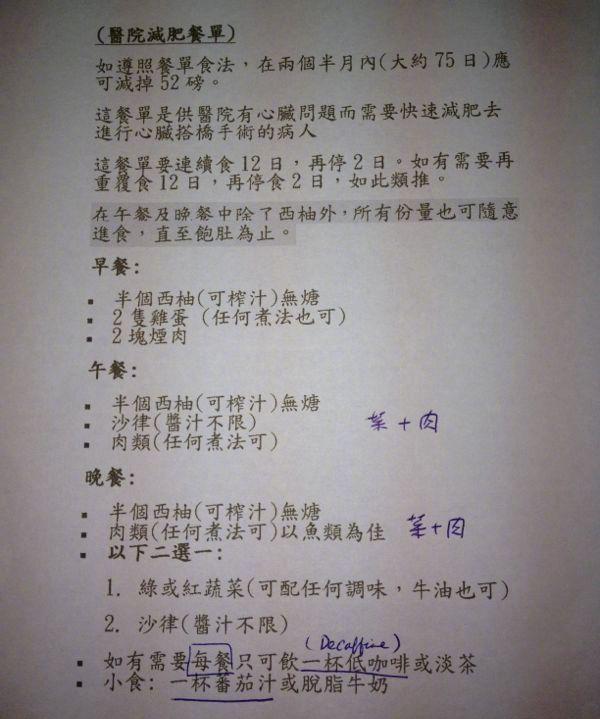 (醫院減肥餐單)
如遵照餐單食法，在兩個半月內(大約75日)應
可減掉52磅。
這餐單是供醫院有心臟問題而需要快速減肥去
進行心臟搭橋手術的病人
這餐單要連續食12日，再停2日。如有需要再
重覆食12日，再停食2日，如此類推。
在午餐及晚餐中除了西柚外，所有份量也可隨意
進食，直至飽肚為止。
早餐:
▪ 半個西柚(可榨汁)無煻
▪ 2隻雞蛋 (任何煮法也可)
▪ 2塊煙肉
午餐:
▪ 半個西柚(可榨汁)無煻
▪ 沙律(醬汁不限) 菜+肉
▪ 肉類(任何煮法可)
晚餐:
▪ 半個西柚(可榨汁)無煻
▪ 肉類(任何煮法可)以魚類為佳 菜+肉
▪ 以下二選一:
1. 綠或紅蔬菜(可配任何調味，牛油也可)
2. 沙律(醬汁不限)
(Decaffine)
▪ 如有需要每餐只可飲一杯低咖啡或淡茶
▪ 小食: 一杯蕃茄汁或脫脂牛奶